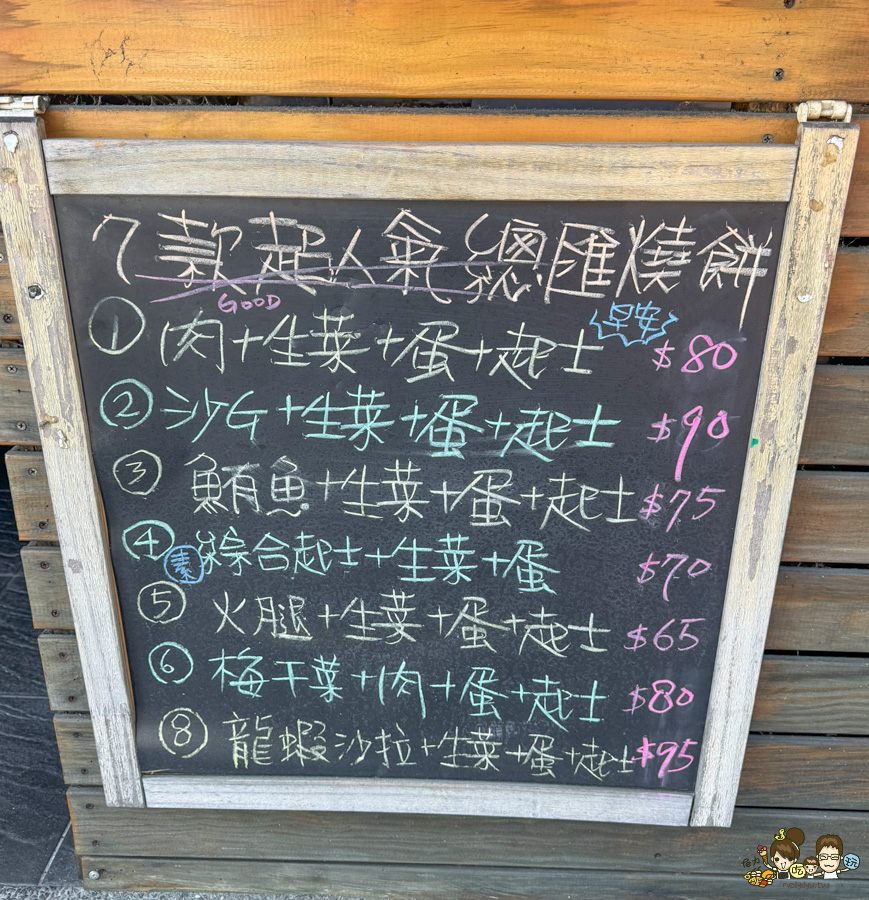 7款超人氣總匯燒餅
GOOD
早安
① 肉+生菜+蛋+起士 $80
② 沙G+生菜+蛋+起士 $90
③ 鮪魚+生菜+蛋+起士 $75
④ 素 綜合起士+生菜+蛋 $70
⑤ 火腿+生菜+蛋+起士 $65
⑥ 梅干菜+肉+蛋+起士 $80
⑧ 龍蝦沙拉+生菜+蛋+起士 $95
吃
玩